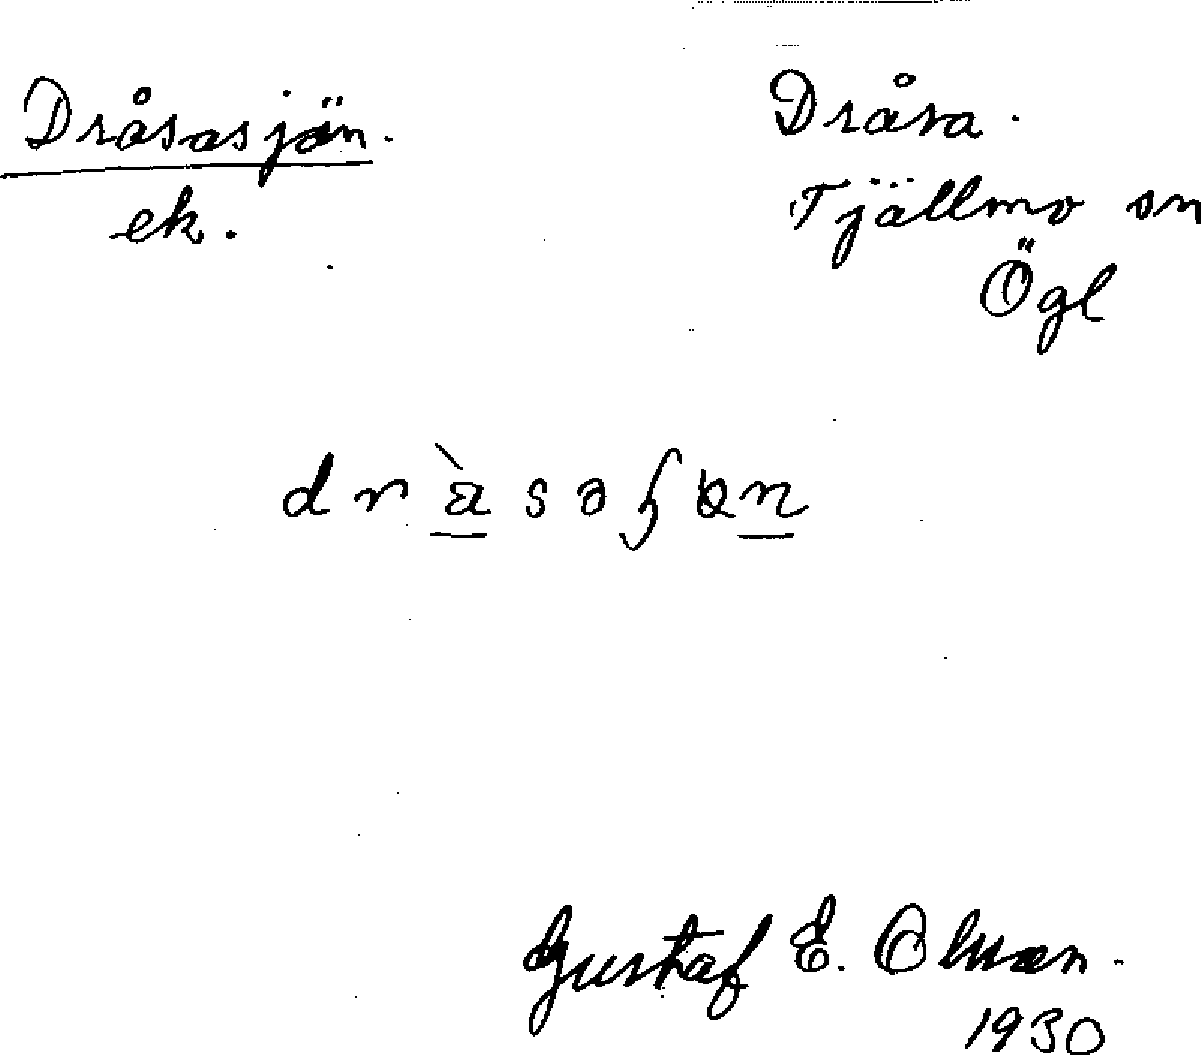 Dråsasjön.
ek.
Dråsa.
Tjällmo sn
Ögl
Gustaf E. Olsson.
1930